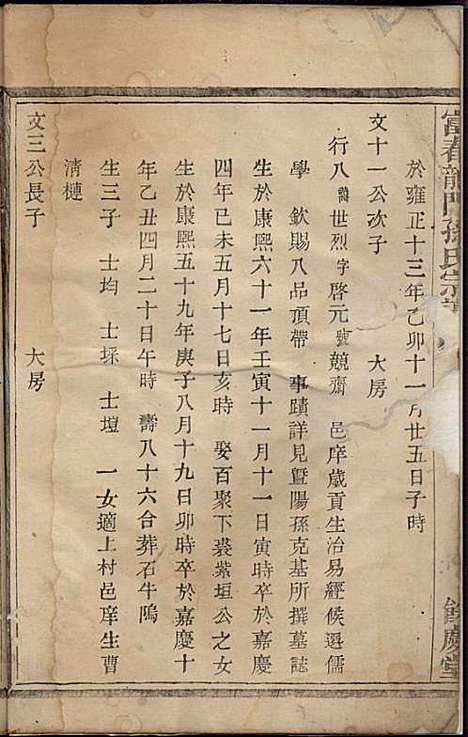 富春龍門孫氏宗譜
餘慶堂
於雍正十三年乙卯十一月廿五日子時
文十一公次子 大房
行八諱世烈字啓元號競齋 邑庠歲貢生治易經候選儒
學 欽賜八品頂帶 事蹟詳見暨陽孫克基所撰墓誌
生於康熙六十一年壬寅十一月十一日寅時卒於嘉慶
四年己未五月十七日亥時 娶百聚下裘紫垣公之女
生於康熙五十九年庚子八月十九日卯時卒於嘉慶十
年乙丑四月二十日午時 壽八十六合葬石牛塢
生三子 士均 士埰 士塏 一女適上村邑庠生曹
清槤
文三公長子 大房